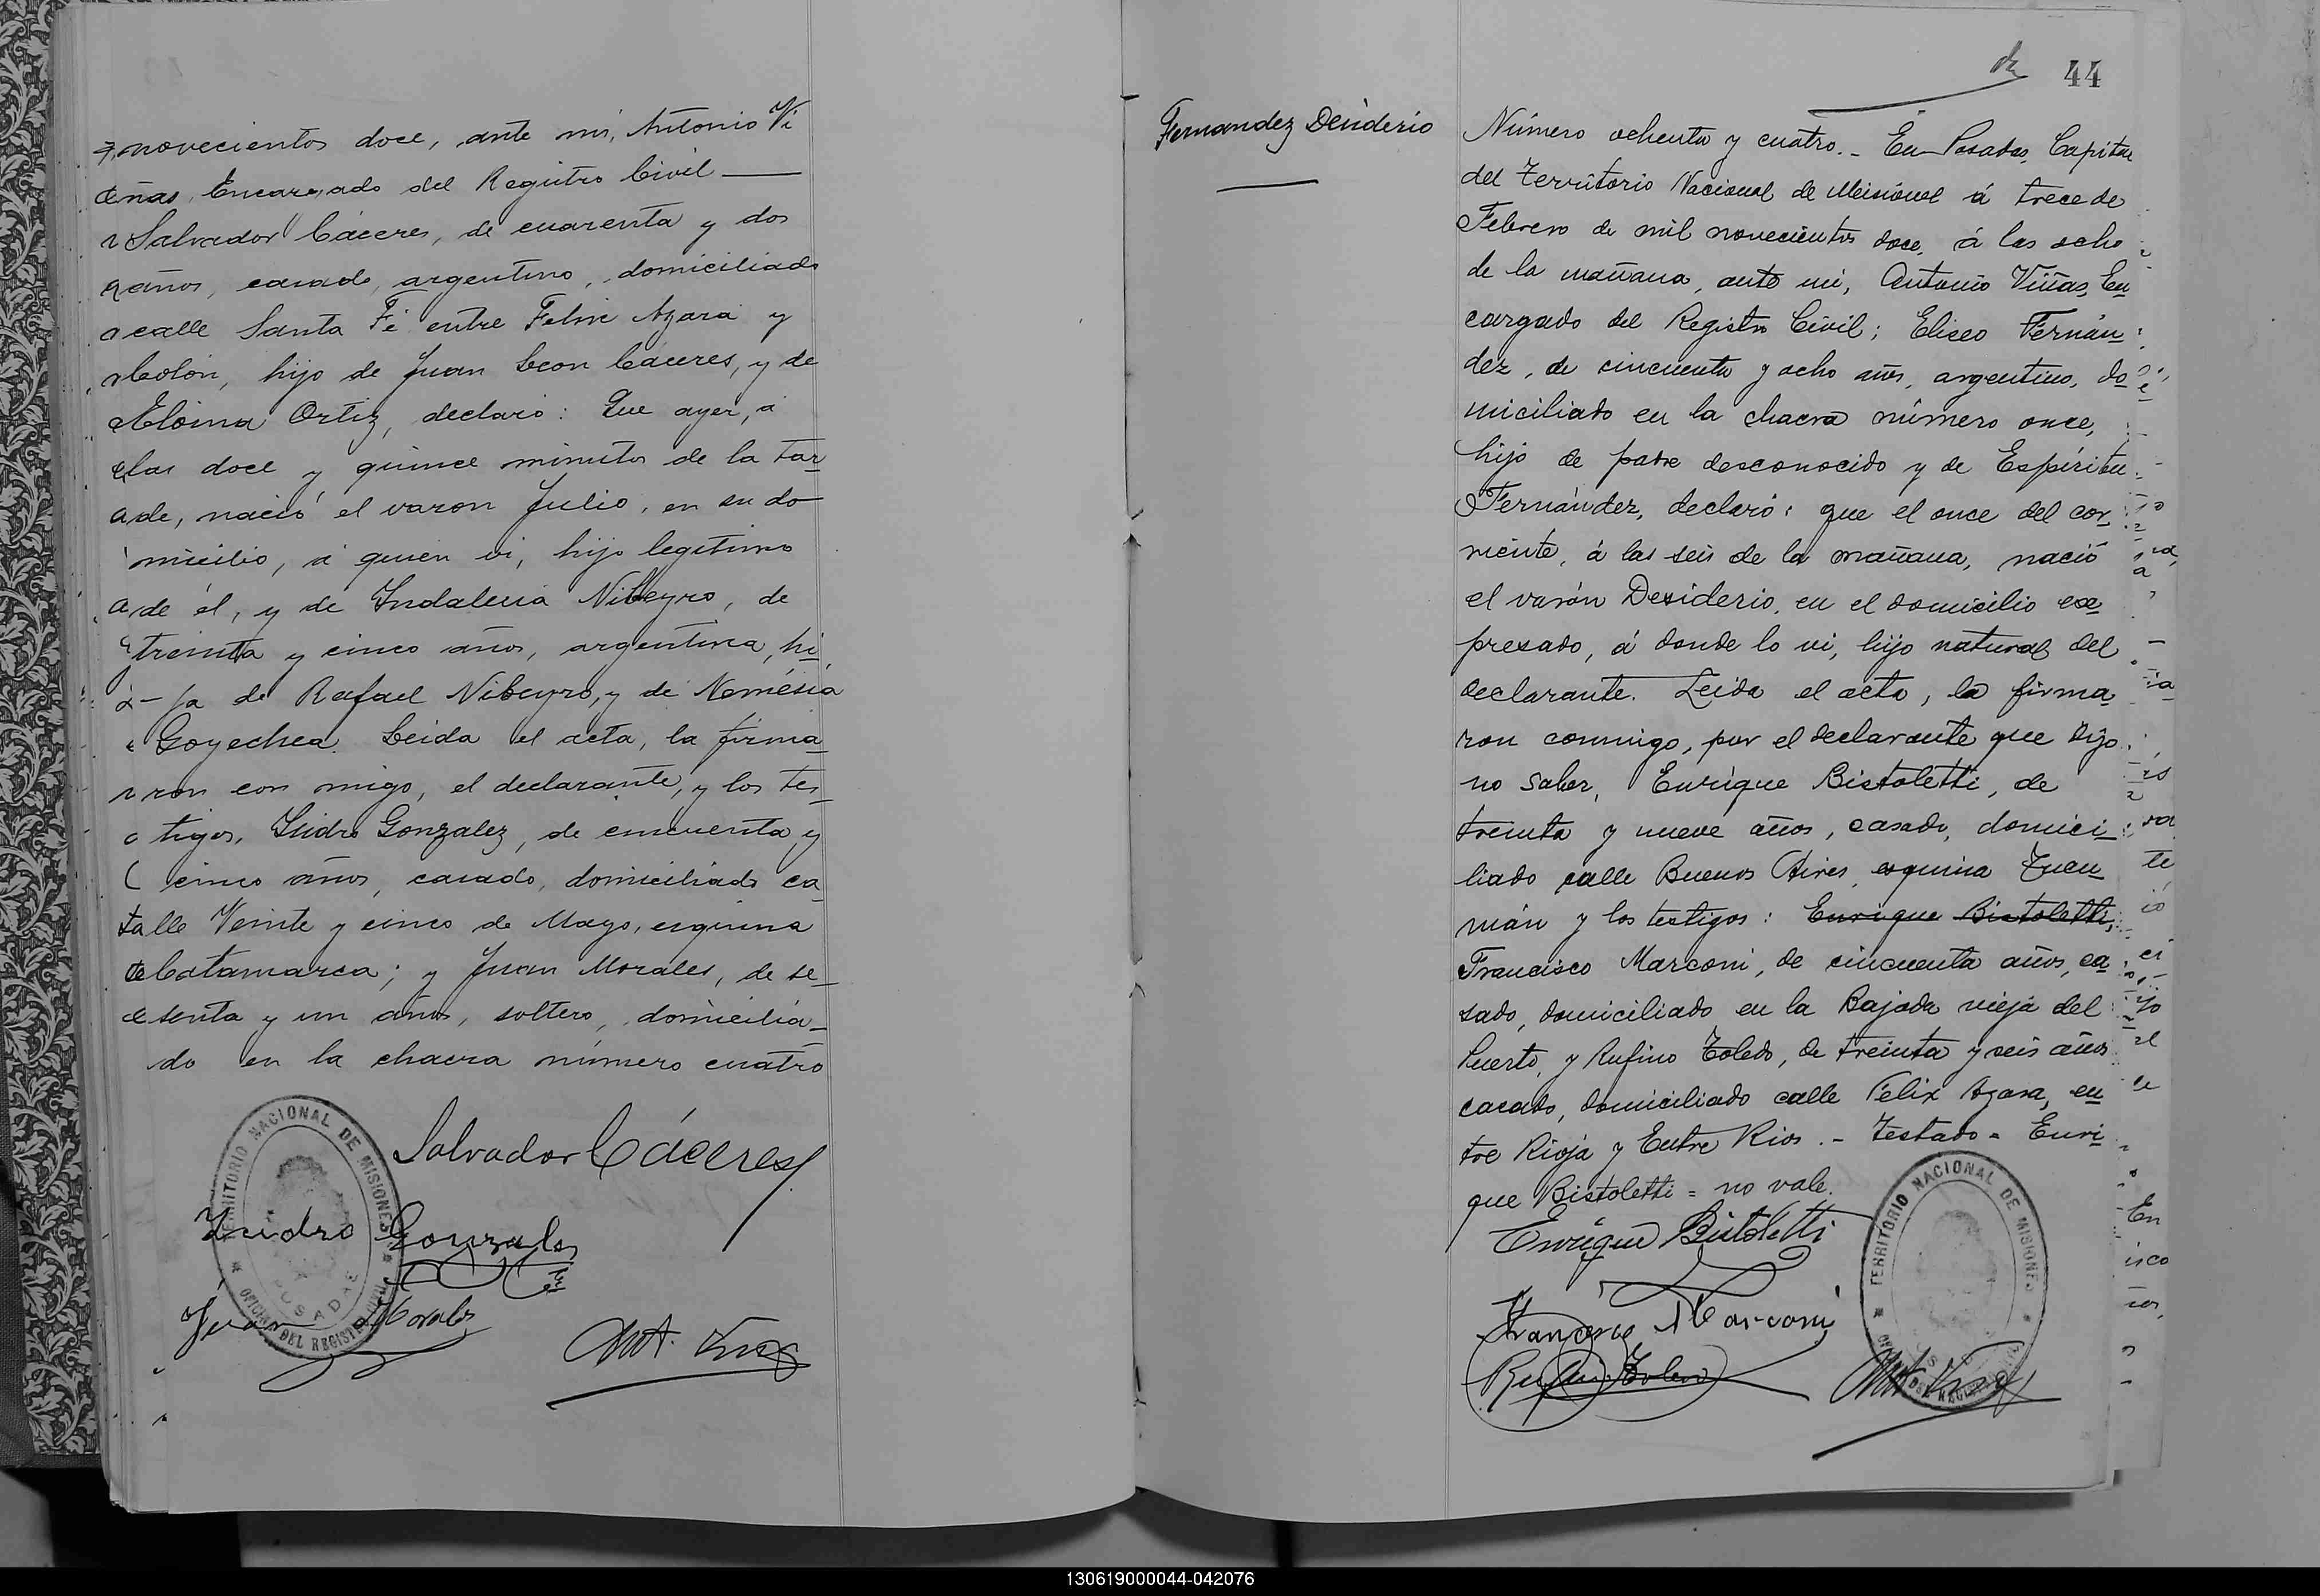 novecientos doce, ante mi, Antonio Vi
ñas, Encargado del Registro Civil
Salvador Cáceres, de cuarenta y dos
años, casado, argentino, domiciliado
calle Santa Fé entre Felix Azara y
Colón, hijo de Juan Leon Cáceres, y de
Eloina Ortiz, declaró: Que ayer, á
las doce y quince minutos de la tar
de, nació el varon Julio, en su do
micilio, á quien vi, hijo legitimo
de él, y de Indalecia Nibeyro, de
treinta y cinco años, argentina, hi
ja de Rafael Nibeyro, y de Nemésia
Goyechea. Leida el acta, la firma
ron con migo, el declarante, y los tes
tigos, Isidro Gonzalez, de cincuenta y
cinco años, casado, domiciliado ca
lle Veinte y cinco de Mayo, esquina
Catamarca; y Juan Morales, de se
senta y un años, soltero, domicilia
do en la chacra número cuatro
Salvador Cáceres
Isidro Gonzalez
Juan Morales
Ant. Viñas
TERRITORIO NACIONAL DE MISIONES
OFICINA DEL REGISTRO CIVIL
POSADAS
44
Fernandez Desiderio
Número ochenta y cuatro.- En Posadas, Capital
del Territorio Nacional de Misiones á trece de
Febrero de mil novecientos doce, á las ocho
de la mañana, ante mi, Antonio Viñas, En
cargado del Registro Civil; Eliseo Fernán
dez, de cincuenta y ocho años, argentino, do
miciliado en la chacra número once,
hijo de padre desconocido y de Espíritu
Fernández, declaró: que el once del cor
riente, á las seis de la mañana, nació
el varón Desiderio, en el domicilio ex
presado, á donde lo vi, hijo natural del
declarante. Leida el acta, la firma
ron conmigo, por el declarante que dijo
no saber, Enrique Bistoletti, de
treinta y nueve años, casado, domici
liado calle Buenos Aires, esquina Tucu
mán y los testigos: Enrique Bistoletti,
Francisco Marconi, de cincuenta años, ca
sado, domiciliado en la Bajada vieja del
Puerto, y Rufino Toledo, de treinta y seis años
casado, domiciliado calle Félix Azara, en
tre Rioja y Entre Rios.- Testado= Enri
que Bistoletti= no vale.
Enrique Bistoletti
Francisco Marconi
Rufino Toledo
Ant. Viñas
TERRITORIO NACIONAL DE MISIONES
130619000044-042076